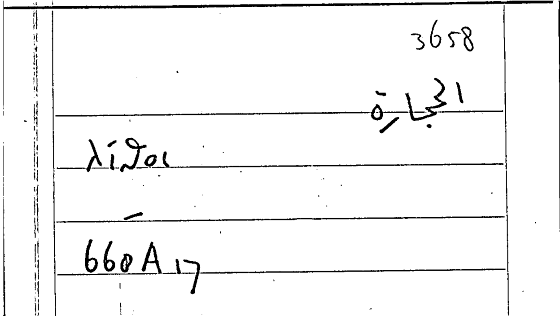 3658
الحجارة
λίθοι
–
660A17